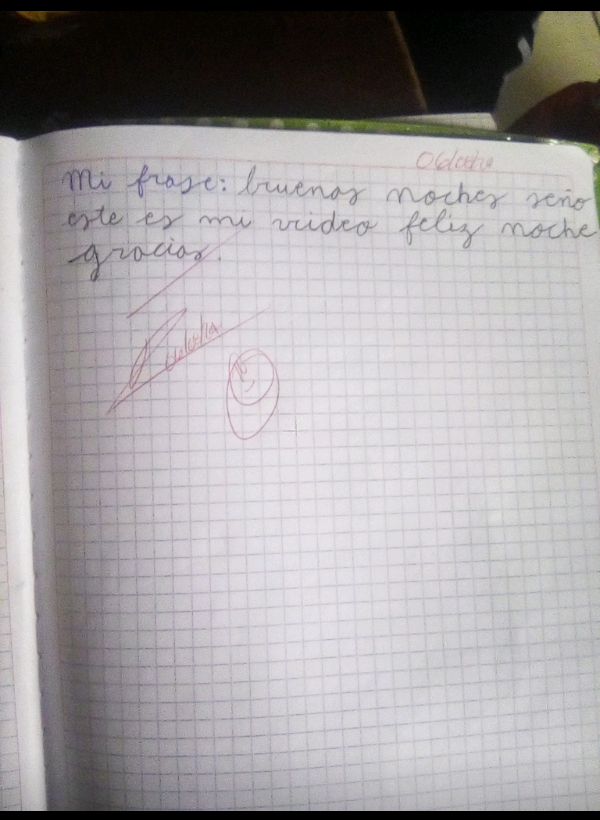 Mi frase: buenas noches seño
este es mi video feliz noche
gracias.